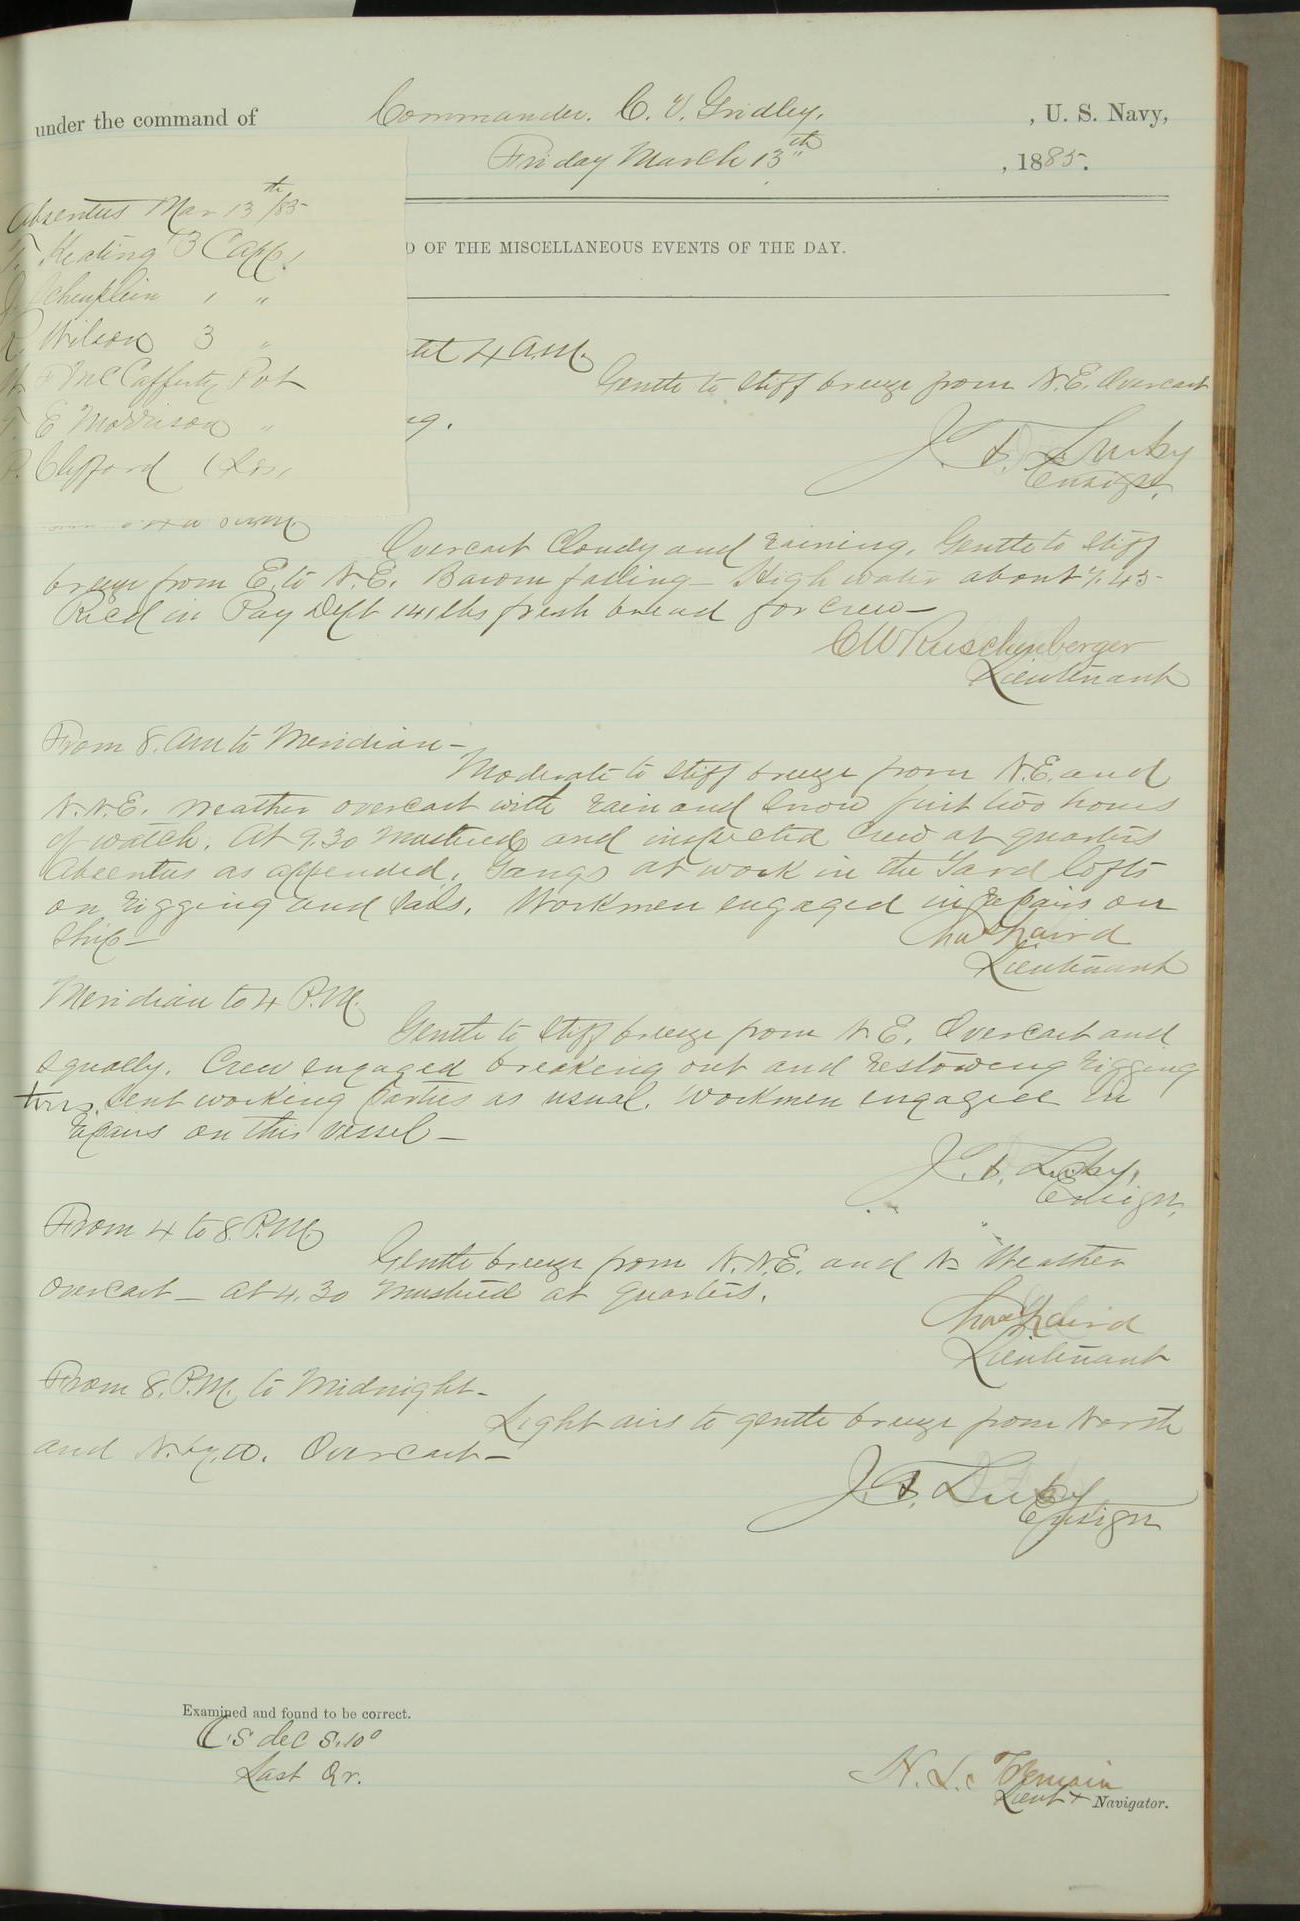 under the command of Commander. C. V. Gridley, , U. S. Navy,
Friday March 13th , 1885.
Absentees Mar 13th/85
Keating B Capp,
Wilson 3 "
McCafferty Pot
E Morrison "
Clifford
D OF THE MISCELLANEOUS EVENTS OF THE DAY.
4 A.M.
Gentle to stiff breeze from N.E. Overcast
Ensign.
Overcast Cloudy and raining, Gentle to stiff
breeze from E. to N.E. Barom falling - High water about
Recd in Pay Dept 141 lbs fresh bread for crew -
C W Ruschenberger
Lieutenant
From 8. am to Meridian -
Moderate to stiff breeze from N.E. and
N.N.E. weather overcast with rain and snow first two hours
of watch. At 9.30 mustered and inspected crew at quarters
Absentees as appended. Gangs at work in the Yard lofts
on rigging and sails. Workmen engaged in repairs on
ship -
Chas Laird
Lieutenant
Meridian to 4 P.M.
Gentle to stiff breeze from N.E. Overcast and
squally. Crew engaged breaking out and restowing rigging
Sent working parties as usual. Workmen engaged in
repairs on this vessel -
J. B. Luby,
Ensign.
From 4 to 8 P.M.
Gentle breeze from N.N.E. and N - Weather
overcast - at 4.30 mustered at quarters.
Chas Laird
Lieutenant
From 8. P.M. to Midnight -
Light airs to gentle breeze from North
and N. by W. Overcast -
J. B. Luby
Ensign
Examined and found to be correct.
C.S dec S. 10°
Last Qr.
Lieut + Navigator.